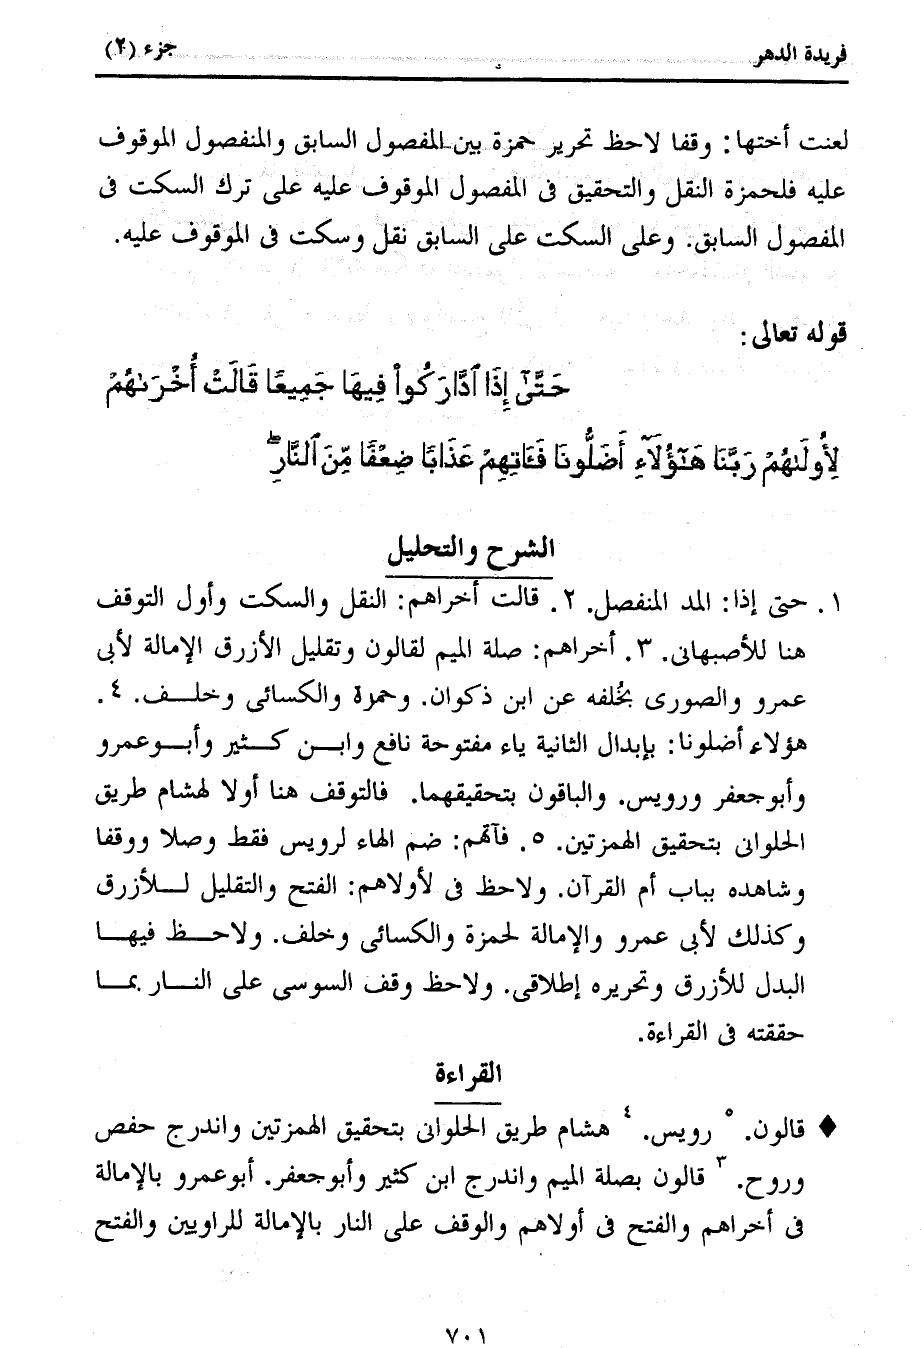 فريدة الدهر جزء (٢)
لعنت أختها: وقفا لاحظ تحرير حمزة بين المفصول السابق والمنفصول الموقوف
عليه فلحمزة النقل والتحقيق فى المفصول الموقوف عليه على ترك السكت فى
المفصول السابق. وعلى السكت على السابق نقل وسكت فى الموقوف عليه.
قوله تعالى:
حَتَّىٰٓ إِذَا ٱدَّارَكُوا۟ فِيهَا جَمِيعًا قَالَتْ أُخْرَىٰهُمْ
لِأُولَىٰهُمْ رَبَّنَا هَـٰٓؤُلَآءِ أَضَلُّونَا فَـَٔاتِهِمْ عَذَابًا ضِعْفًا مِّنَ ٱلنَّارِ ۖ
الشرح والتحليل
١. حتى إذا: المد المنفصل. ٢. قالت أخراهم: النقل والسكت وأول التوقف
هنا للأصبهانى. ٣. أخراهم: صلة الميم لقالون وتقليل الأزرق الإمالة لأبى
عمرو والصورى بخُلفه عن ابن ذكوان. وحمزة والكسائى وخلـــف. ٤.
هؤلاء أضلونا: بإبدال الثانية ياء مفتوحة نافع وابـــن كـــثير وأبـــوعمرو
وأبوجعفر ورويس. والباقون بتحقيقهما. فالتوقف هنا أولا لهشام طريق
الحلوانى بتحقيق الهمزتين. ٥. فآتهم: ضم الهاء لرويس فقط وصلا ووقفا
وشاهده بباب أم القرآن. ولاحظ فى لأولاهم: الفتح والتقليل لـــلأزرق
وكذلك لأبى عمرو والإمالة لحمزة والكسائى وخلف. ولاحـــظ فيهـــا
البدل للأزرق وتحريره إطلاقى. ولاحظ وقف السوسى على النـــار بمـــا
حققته فى القراءة.
القراءة
♦ قالون. ٥ رويس. ٤ هشام طريق الحلوانى بتحقيق الهمزتين واندرج حفص
وروح. ٣ قالون بصلة الميم واندرج ابن كثير وأبوجعفر. أبوعمرو بالإمالة
فى أخراهم والفتح فى أولاهم والوقف على النار بالإمالة للراويين والفتح
٧٠١